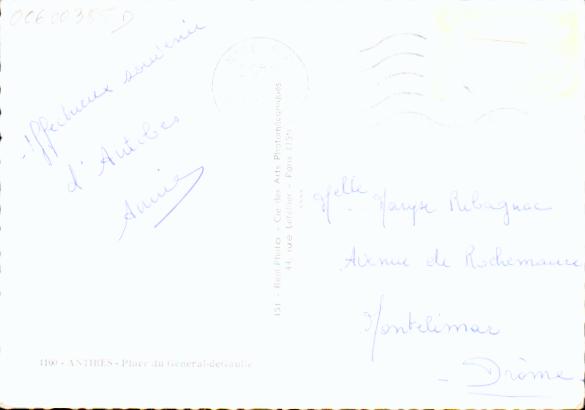 OC600355D
Affectueux souvenir
d'Antibes
Annie
151 - Real-Photo - Cie des Arts Photomécaniques
44, rue Letellier - Paris XV
Melle Maryse Ribagnac
Avenue de Rochemaure
Montelimar
- Drôme
1100 - ANTIBES - Place du Général-de-Gaulle